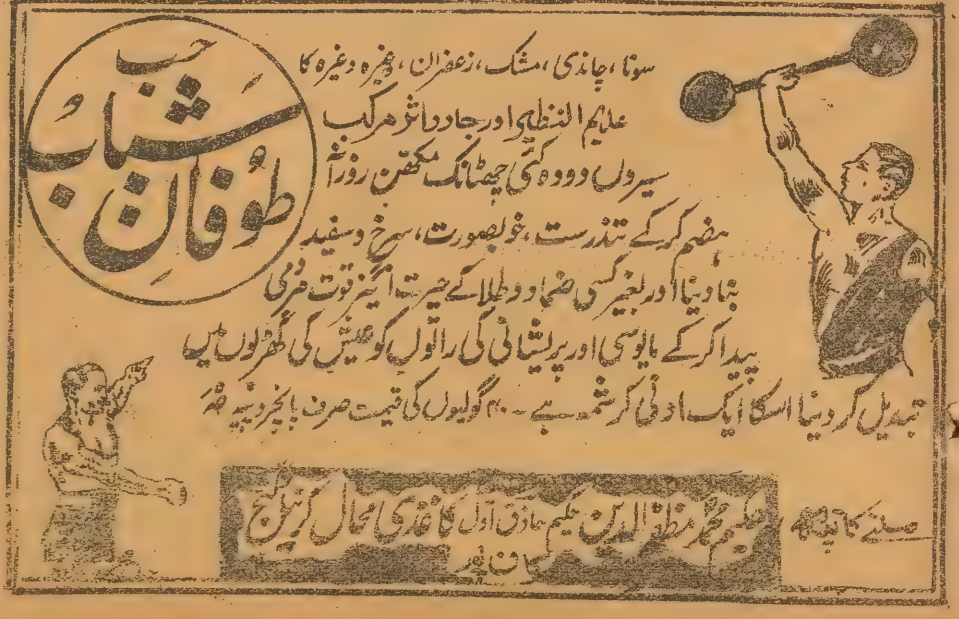 حب
شباب
طوفان
سونا، چاندی، مشک، زعفران، وغیرہ وغیرہ کا
عدیم النظیر اور جادو اثر مرکب
سیروں دودھ کئی چھٹانک مکھن روزآ
ہضم کر کے تندرست، خوبصورت، سرخ و سفید
بنا دینا اور بغیر کسی ضماد و طلا کے حیرت انگیز قوت مردمی
پیدا کر کے مایوسی اور پریشانی کی راتوں کو عیش کی گھڑیوں میں
تبدیل کر دینا اسکا ایک ادنیٰ کرشمہ ہے۔ گولیوں کی قیمت صرف پانچروپیہ
ملنے کا پتہ
حکیم محمد مظفر الدین حکیم حاذق اول کاغذی محال کرنیل گنج
کانپور